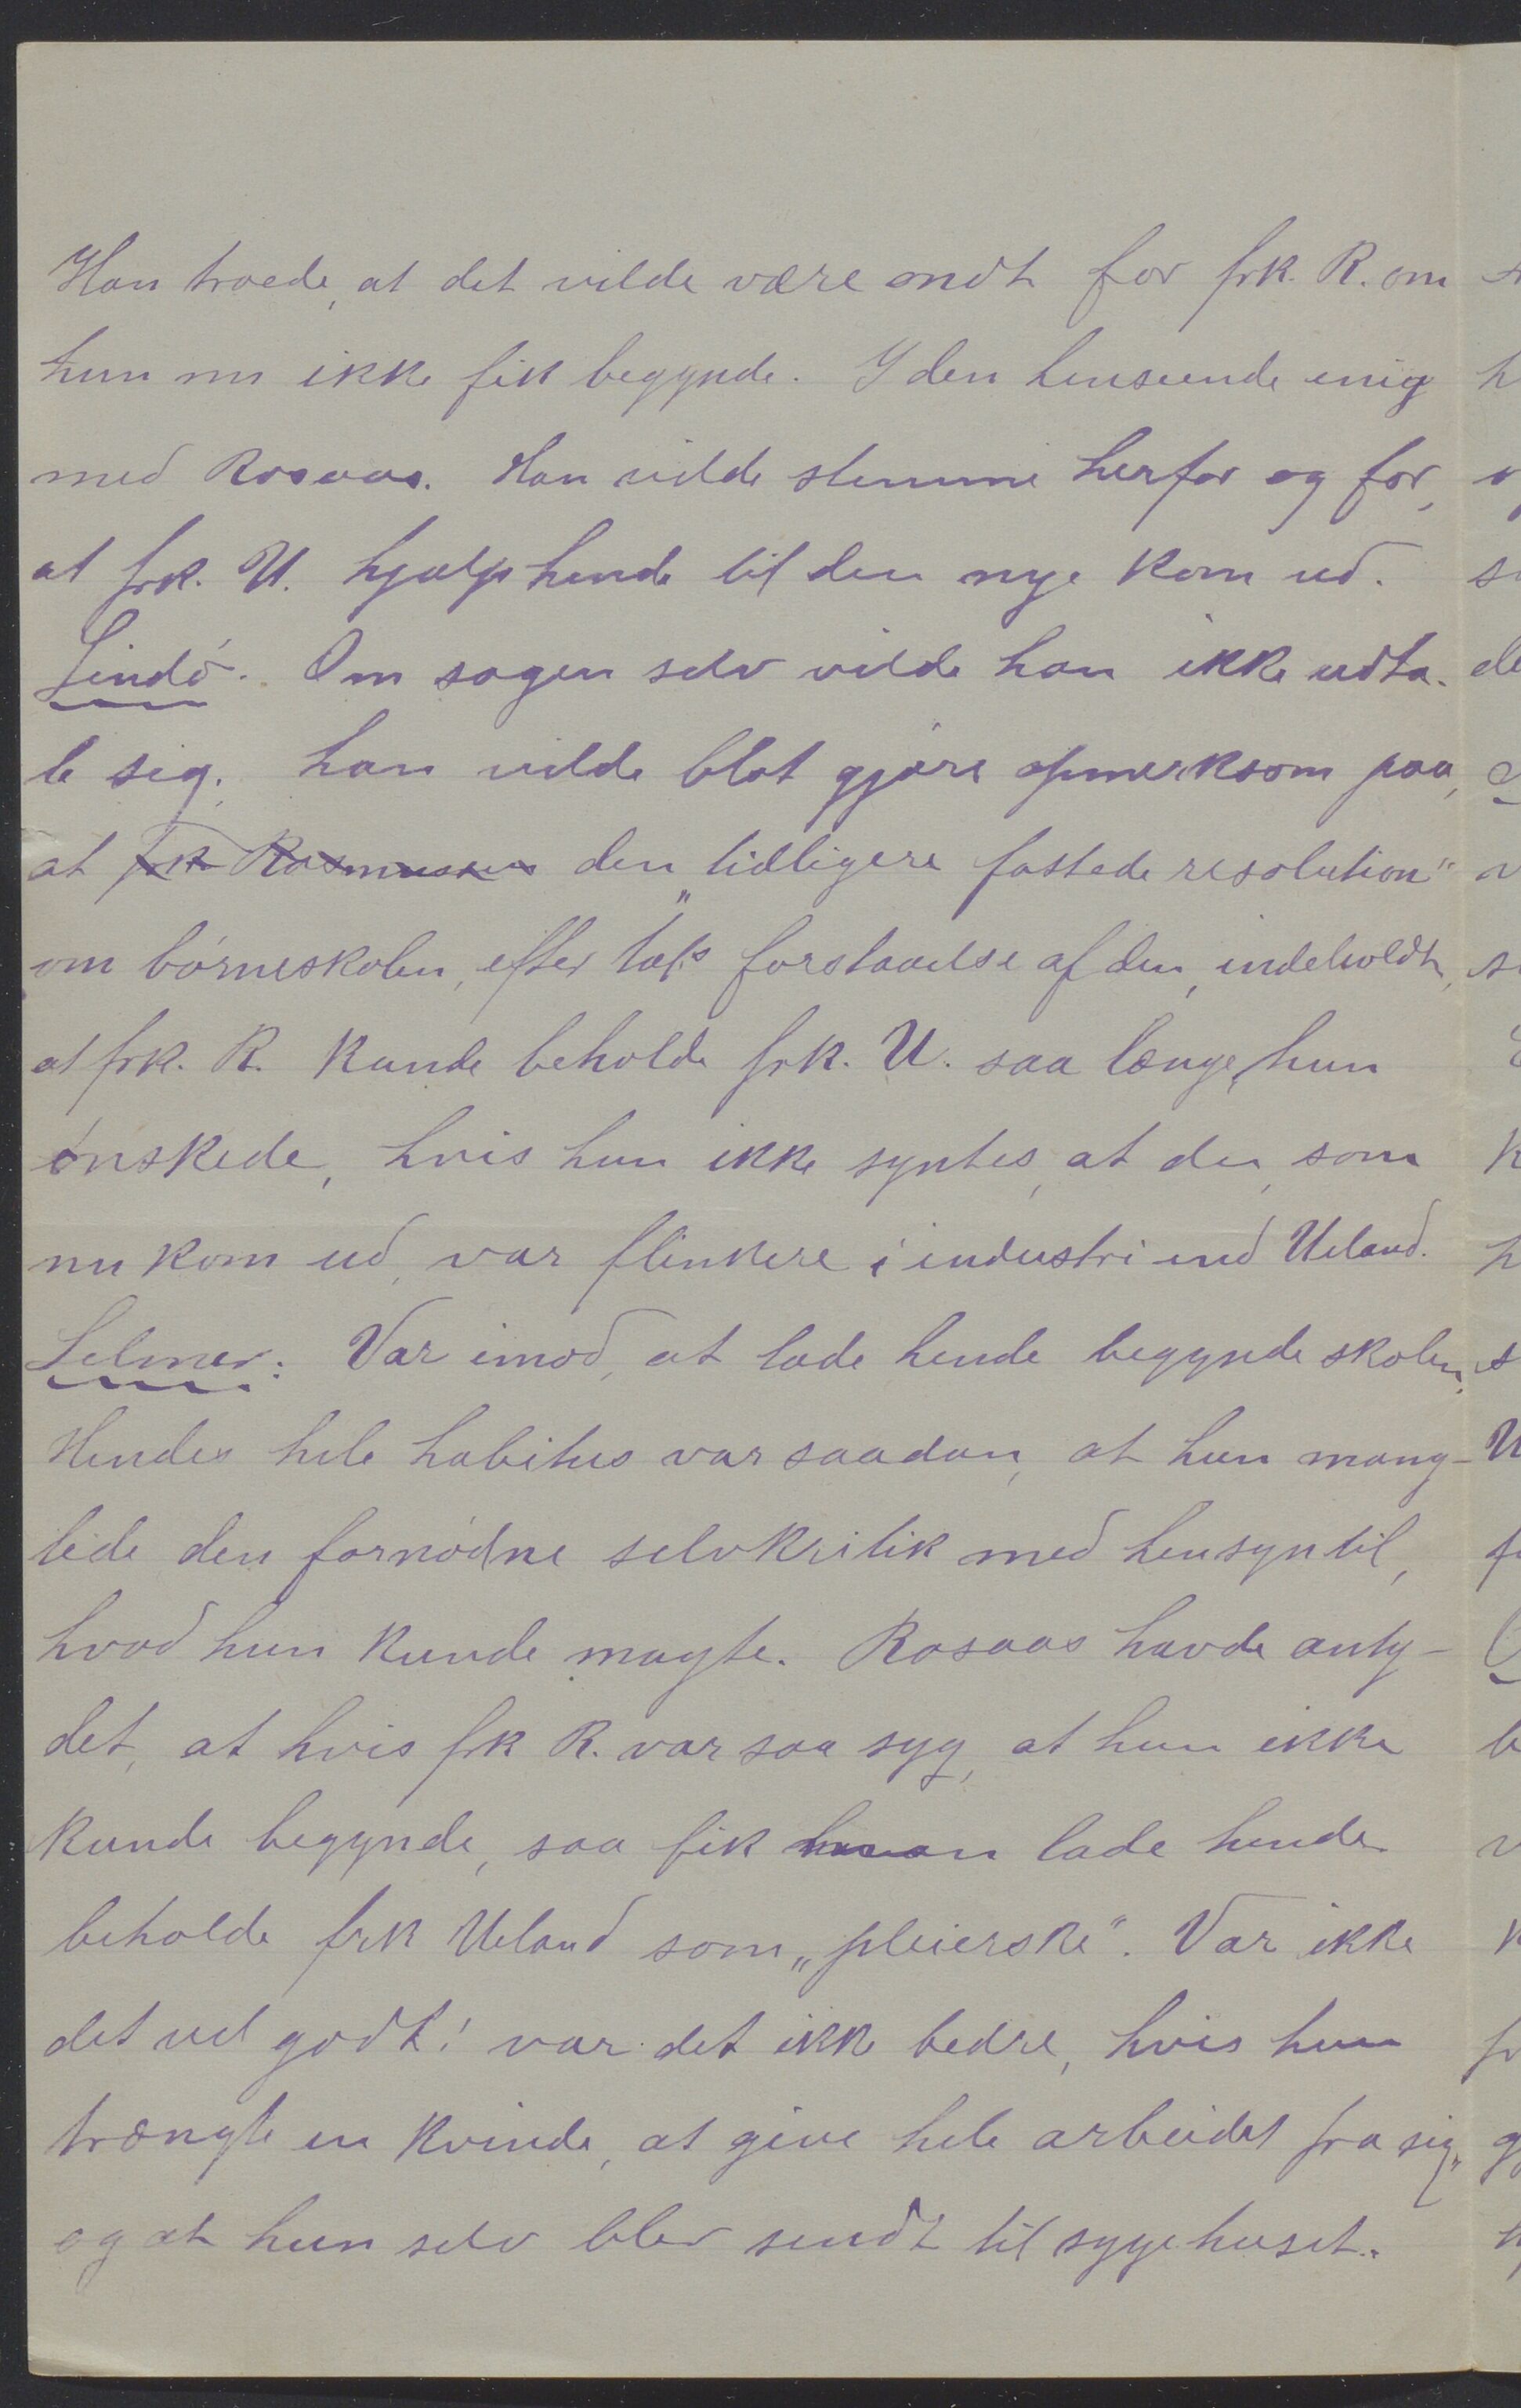 Han troede, at det vilde være ondt for frk. R. om
hun nu ikke fik begynde. I den henseende enig
med Rosaas. Han vilde stemme herfor og for,
at frk. U. hjalp hende til den nye kom ud.
Lindö. Om sagen selv vilde han ikke udta-
le sig, han vilde blot gjøre opmerksom paa,
at frk Rasmussen den "tidligere fastede resolution"
om börneskolen, efter forstaaelse af den, indeholdt,
at frk. R. kunde beholde frk. U. saa længe, hun
ønskede, hvis hun ikke syntes, at den, som
nu kom ud, var flinkere i industri end Ueland.
Selmer: Var imod, at lade hende begynde skolen.
Hendes hele habitus var saadan, at hun mang-
lede den fornødne selvkritik med hensyn til,
hvad hun kunde magte. Rosaas havde anty-
det, at hvis frk R. var saa syg, at hun ikke
kunde begynde, saa fik man lade hende
beholde frk Ueland som "pleierske". Var ikke
det vel godt! var det ikke bedre, hvis hun
trængte en kvinde, at give hele arbeidet fra sig,
og at hun selv blev sendt til sygehuset.